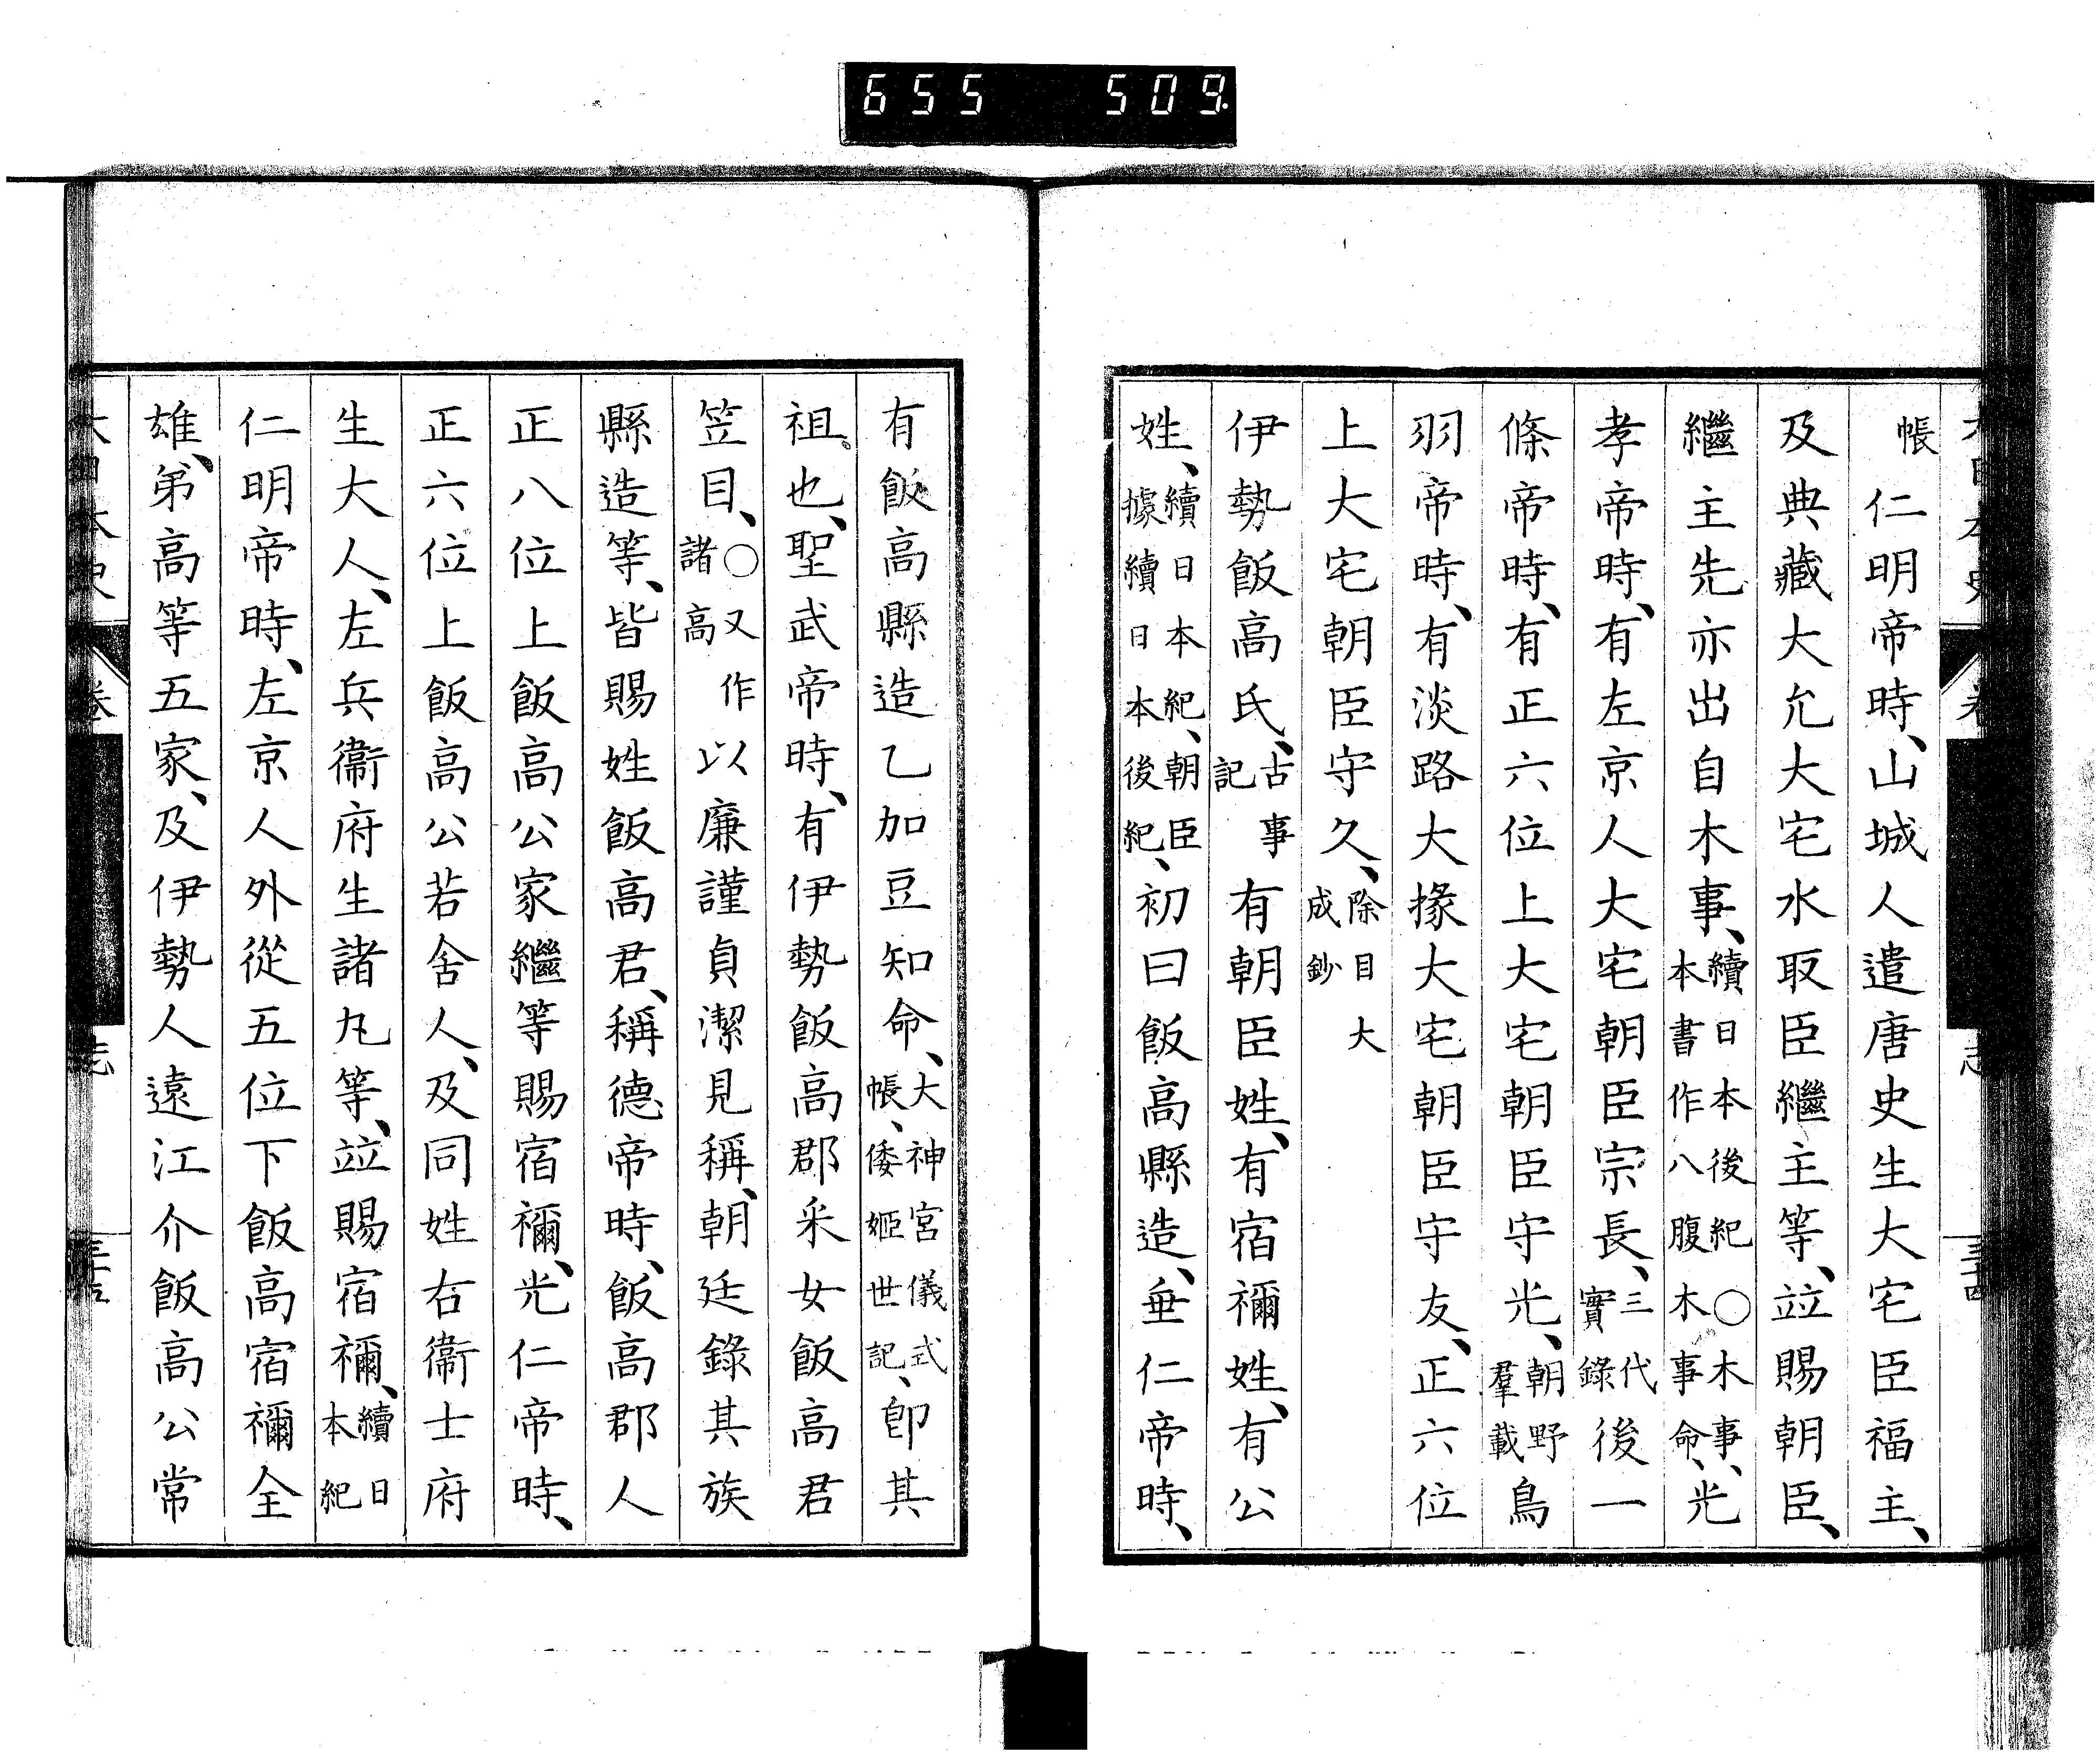 655 509
帳仁明帝時、山城人遣唐史生大宅臣福主、
及典藏大允大宅水取臣繼主等、竝賜朝臣、
繼主先亦出自木事、續日本後紀○木事、本書作八腹木事命、光
孝帝時、有左京人大宅朝臣宗長、三代實錄後一
條帝時、有正六位上大宅朝臣守光、朝野羣載鳥
羽帝時、有淡路大掾大宅朝臣守友、正六位
上大宅朝臣守久、除目大成鈔
伊勢飯高氏、古事記有朝臣姓、有宿禰姓、有公
姓、續日本紀、朝臣據續日本後紀、初曰飯高縣造、垂仁帝時、
有飯高縣造乙加豆知命、大神宮儀式帳、倭姬世記、卽其
祖也、聖武帝時、有伊勢飯高郡采女飯高君
笠目、○又作諸高以廉謹貞潔見稱、朝廷錄其族
縣造等、皆賜姓飯高君、稱德帝時、飯高郡人
正八位上飯高公家繼等賜宿禰、光仁帝時、
正六位上飯高公若舍人、及同姓右衞士府
生大人、左兵衞府生諸丸等、竝賜宿禰、續日本紀
仁明帝時、左京人外從五位下飯高宿禰全
雄、弟高等五家、及伊勢人遠江介飯高公常